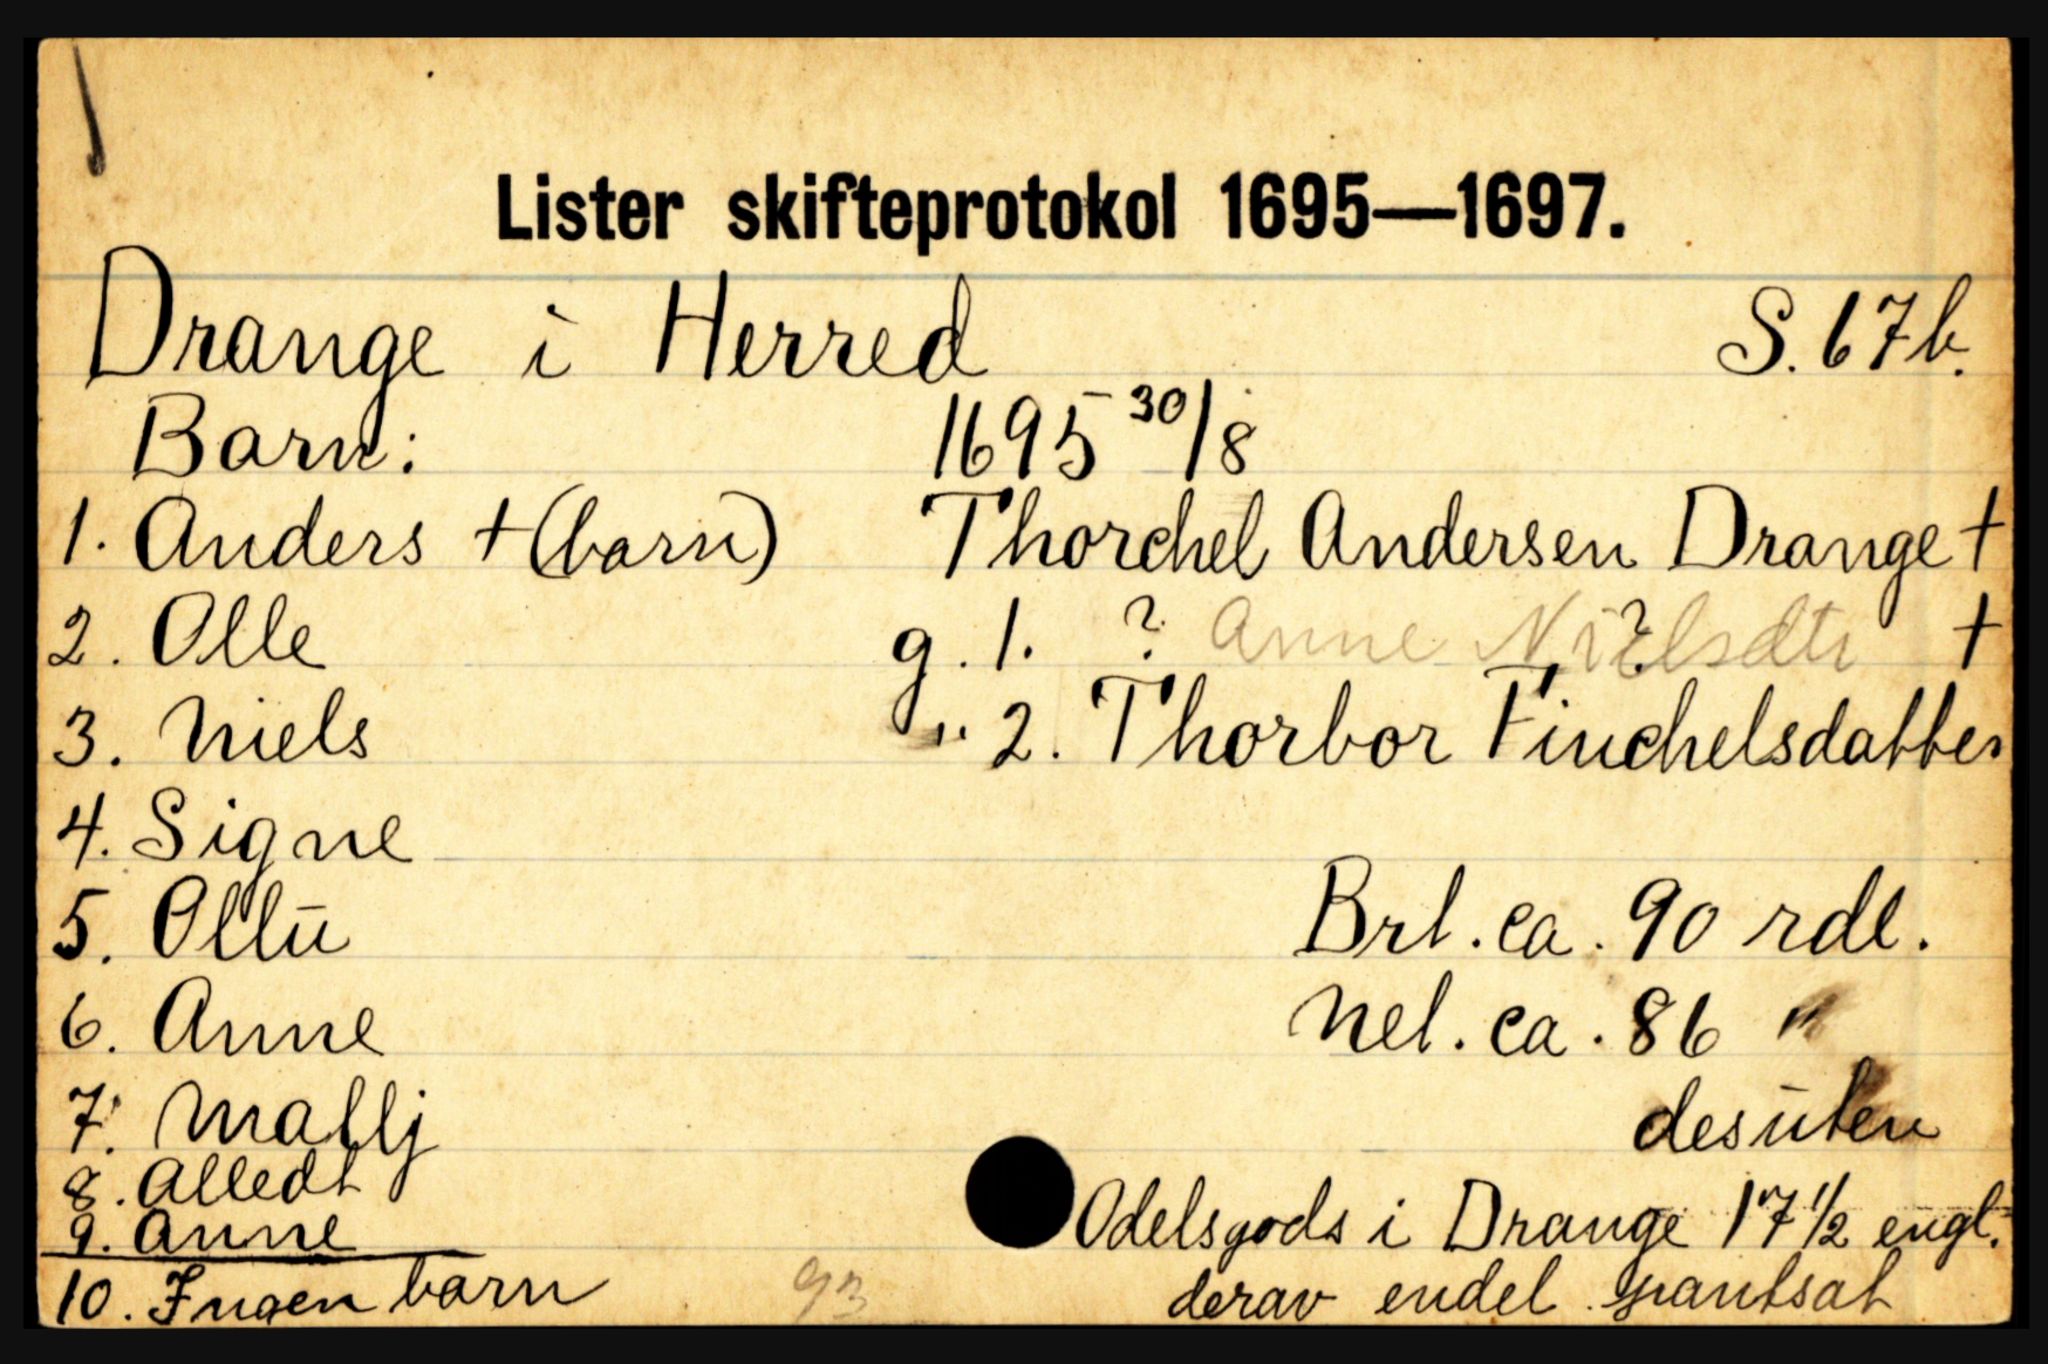 Lister skifteprotokol 1695—1697.
Drange i Herred S. 67b.
Barn: 1695 30/8
1. Anders +(barn) Thorchel Andersen Drange +
2. Olle g. 1. ? Anne Nielsdtr ? +
3. Niels " 2. Thorbor Finchelsdatter
4. Signe
5. Ollu Brt. ca. 90 rdl.
6. Anne Net. ca. 86 "
7. Mallj desuten
8. Alledt
9. Anne Odelsgods i Drange 17 1/2 engl.
10. Ingen barn 93 derav endel pantsat